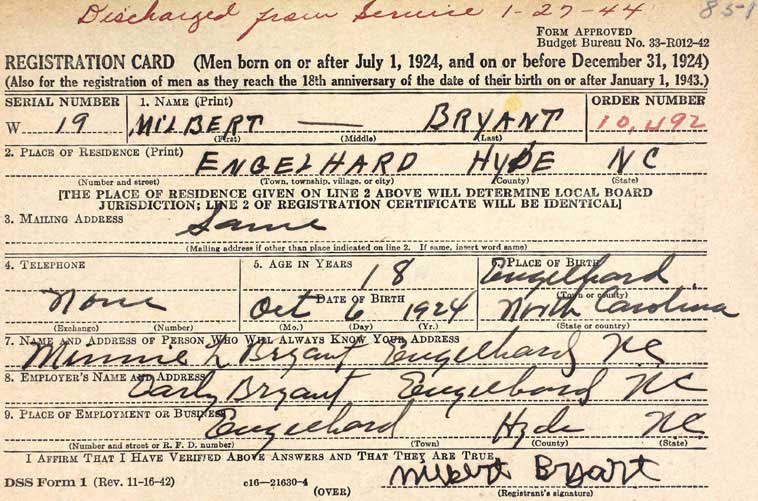 Discharged from Service 1-27-44 85-1
FORM APPROVED
Budget Bureau No. 33-R012-42
REGISTRATION CARD (Men born on or after July 1, 1924, and on or before December 31, 1924)
(Also for the registration of men as they reach the 18th anniversary of the date of their birth on or after January 1, 1943.)
SERIAL NUMBER 1. NAME (Print) ORDER NUMBER
W 19 MILBERT — BRYANT 10,492
(First) (Middle) (Last)
2. PLACE OF RESIDENCE (Print)
ENGELHARD HYDE NC
(Number and street) (Town, township, village, or city) (County) (State)
[THE PLACE OF RESIDENCE GIVEN ON LINE 2 ABOVE WILL DETERMINE LOCAL BOARD
JURISDICTION; LINE 2 OF REGISTRATION CERTIFICATE WILL BE IDENTICAL]
3. MAILING ADDRESS
Same
(Mailing address if other than place indicated on line 2. If same, insert word same)
4. TELEPHONE 5. AGE IN YEARS 6. PLACE OF BIRTH
18 Engelhard
DATE OF BIRTH (Town or county)
None Oct 6 1924 North Carolina
(Exchange) (Number) (Mo.) (Day) (Yr.) (State or country)
7. NAME AND ADDRESS OF PERSON WHO WILL ALWAYS KNOW YOUR ADDRESS
Minnie L Bryant Engelhard NC
8. EMPLOYER'S NAME AND ADDRESS
Early Bryant Engelhard NC
9. PLACE OF EMPLOYMENT OR BUSINESS
Engelhard Hyde NC
(Number and street or R. F. D. number) (Town) (County) (State)
I AFFIRM THAT I HAVE VERIFIED ABOVE ANSWERS AND THAT THEY ARE TRUE.
Milbert Bryart
DSS Form 1 (Rev. 11-16-42) c16—21630-4 (OVER) (Registrant's signature)